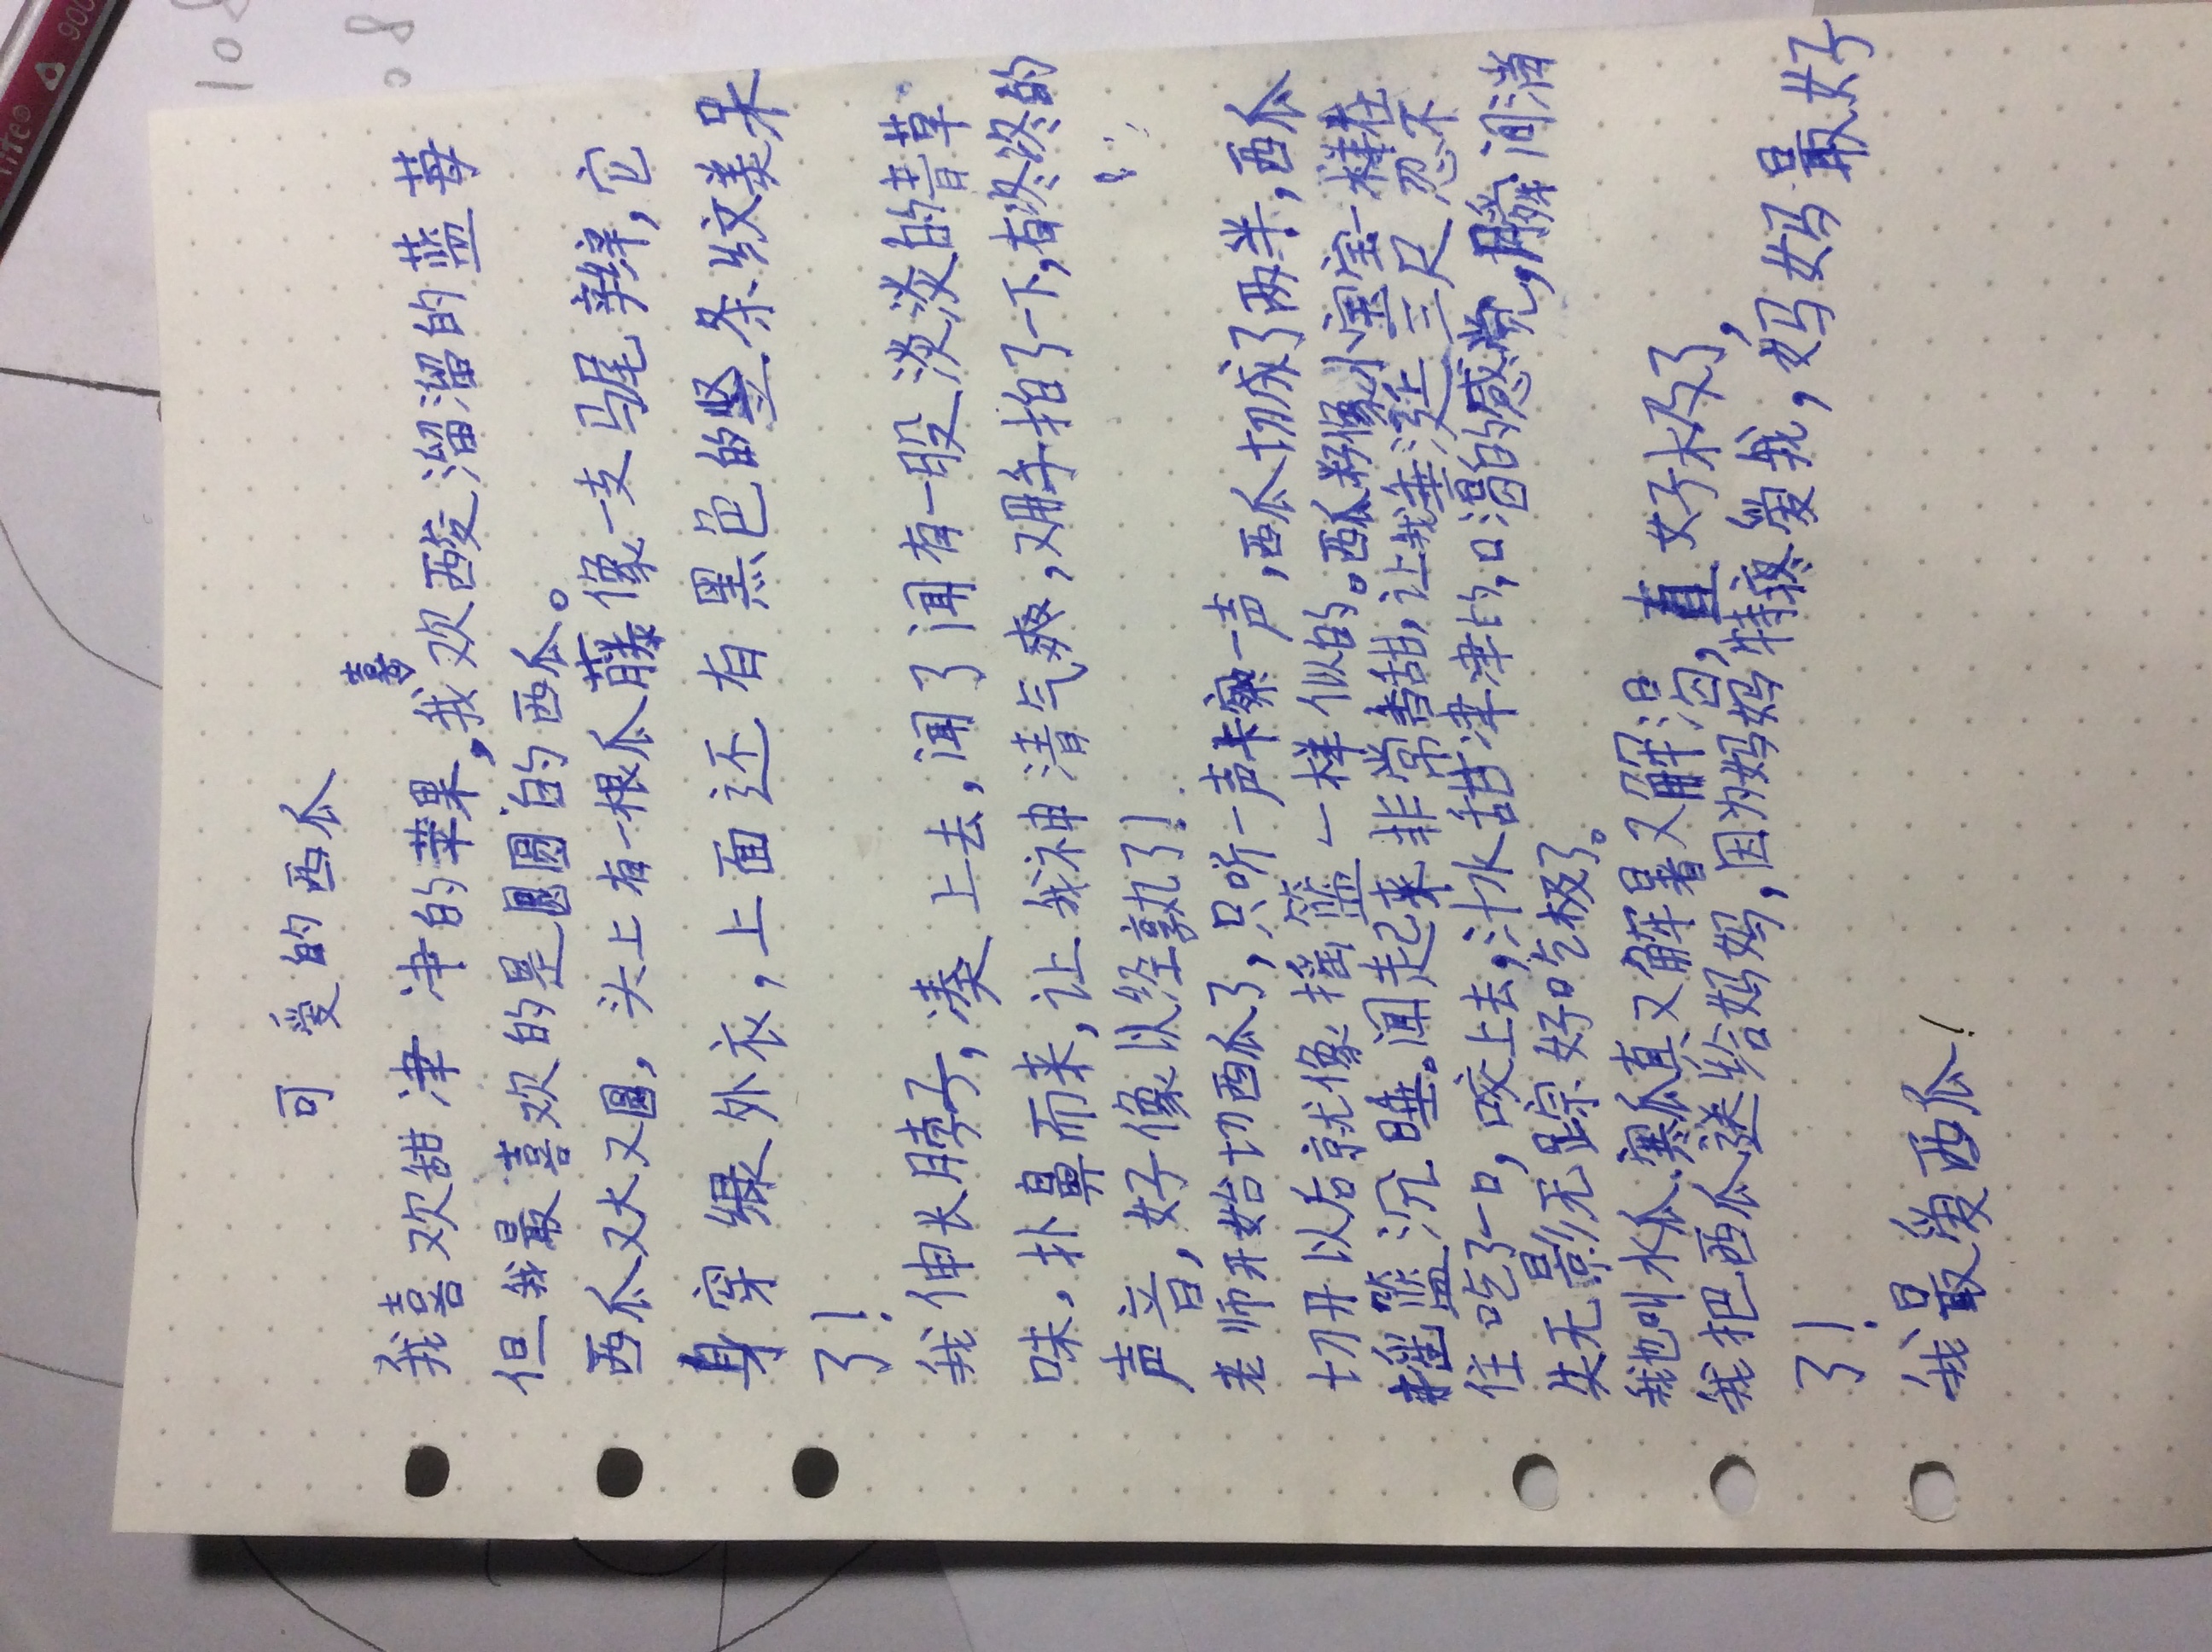 可爱的西瓜
我喜欢甜津津的苹果,我喜欢酸溜溜的蓝莓
但我最喜欢的是圆圆的西瓜。
西瓜又大又圆,头上有一根瓜藤像一支马尾辫,它
身穿绿外衣,上面还有黑色的竖条纹美呆
了!
我伸长脖子,凑上去,闻了闻有一股淡淡的青草
味,扑鼻而来,让我神清气爽,又用手拍了一下,有咚咚的
声音,好像以经熟了!
老师开始切西瓜了,只听一声卡嚓一声,西瓜切成了两半,西瓜
切开以后就像摇篮一样似的。西瓜籽像小宝宝一样在
摇篮沉睡。闻起来非常香甜,让我垂涎三尺忍不
住吃了一口,咬上去,汁水甜津津的,口渴的感觉,瞬间消
失无影无踪好吃极了。
我也叫水瓜、寒瓜真又解暑又解渴,真好极了,
我把西瓜送给妈妈,因为妈妈特疼爱我,妈妈最好
了!
我最爱西瓜!
108
08
rite®
900